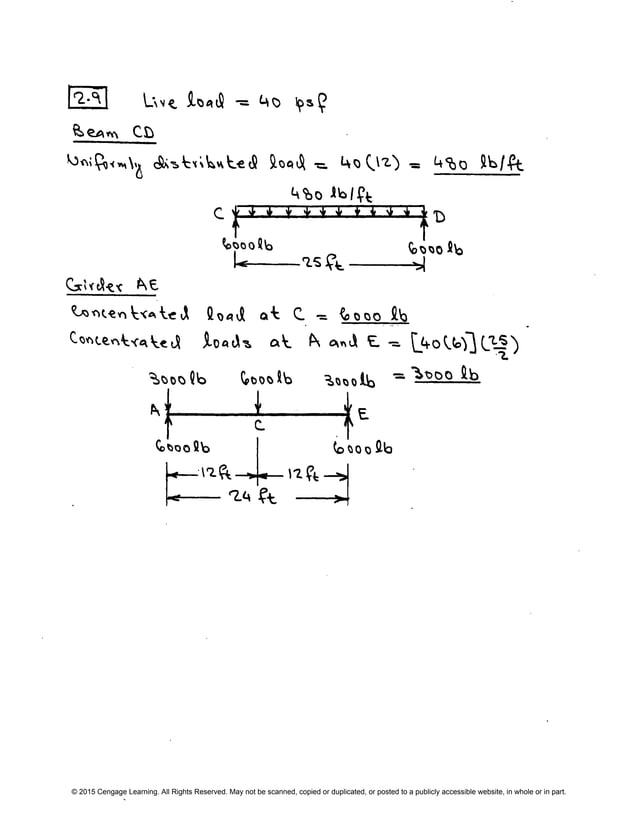 2.9 Live load = 40 psf
Beam CD
Uniformly distributed load = 40(12) = 480 lb/ft
480 lb/ft
C D
6000lb 6000 lb
25 ft
Girder AE
Concentrated load at C = 6000 lb
Concentrated loads at A and E = [40(6)](25/2)
= 3000 lb
3000 lb 6000 lb 3000 lb
A E
C
6000 lb 6000 lb
12 ft 12 ft
24 ft
© 2015 Cengage Learning. All Rights Reserved. May not be scanned, copied or duplicated, or posted to a publicly accessible website, in whole or in part.